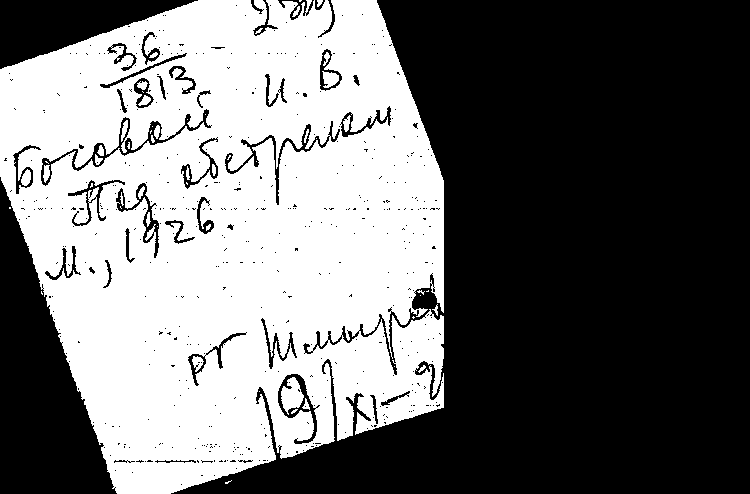 36 -
1813
Боговой И. В.
Под обстрелом.
М., 1926.
рг
19/XI-9